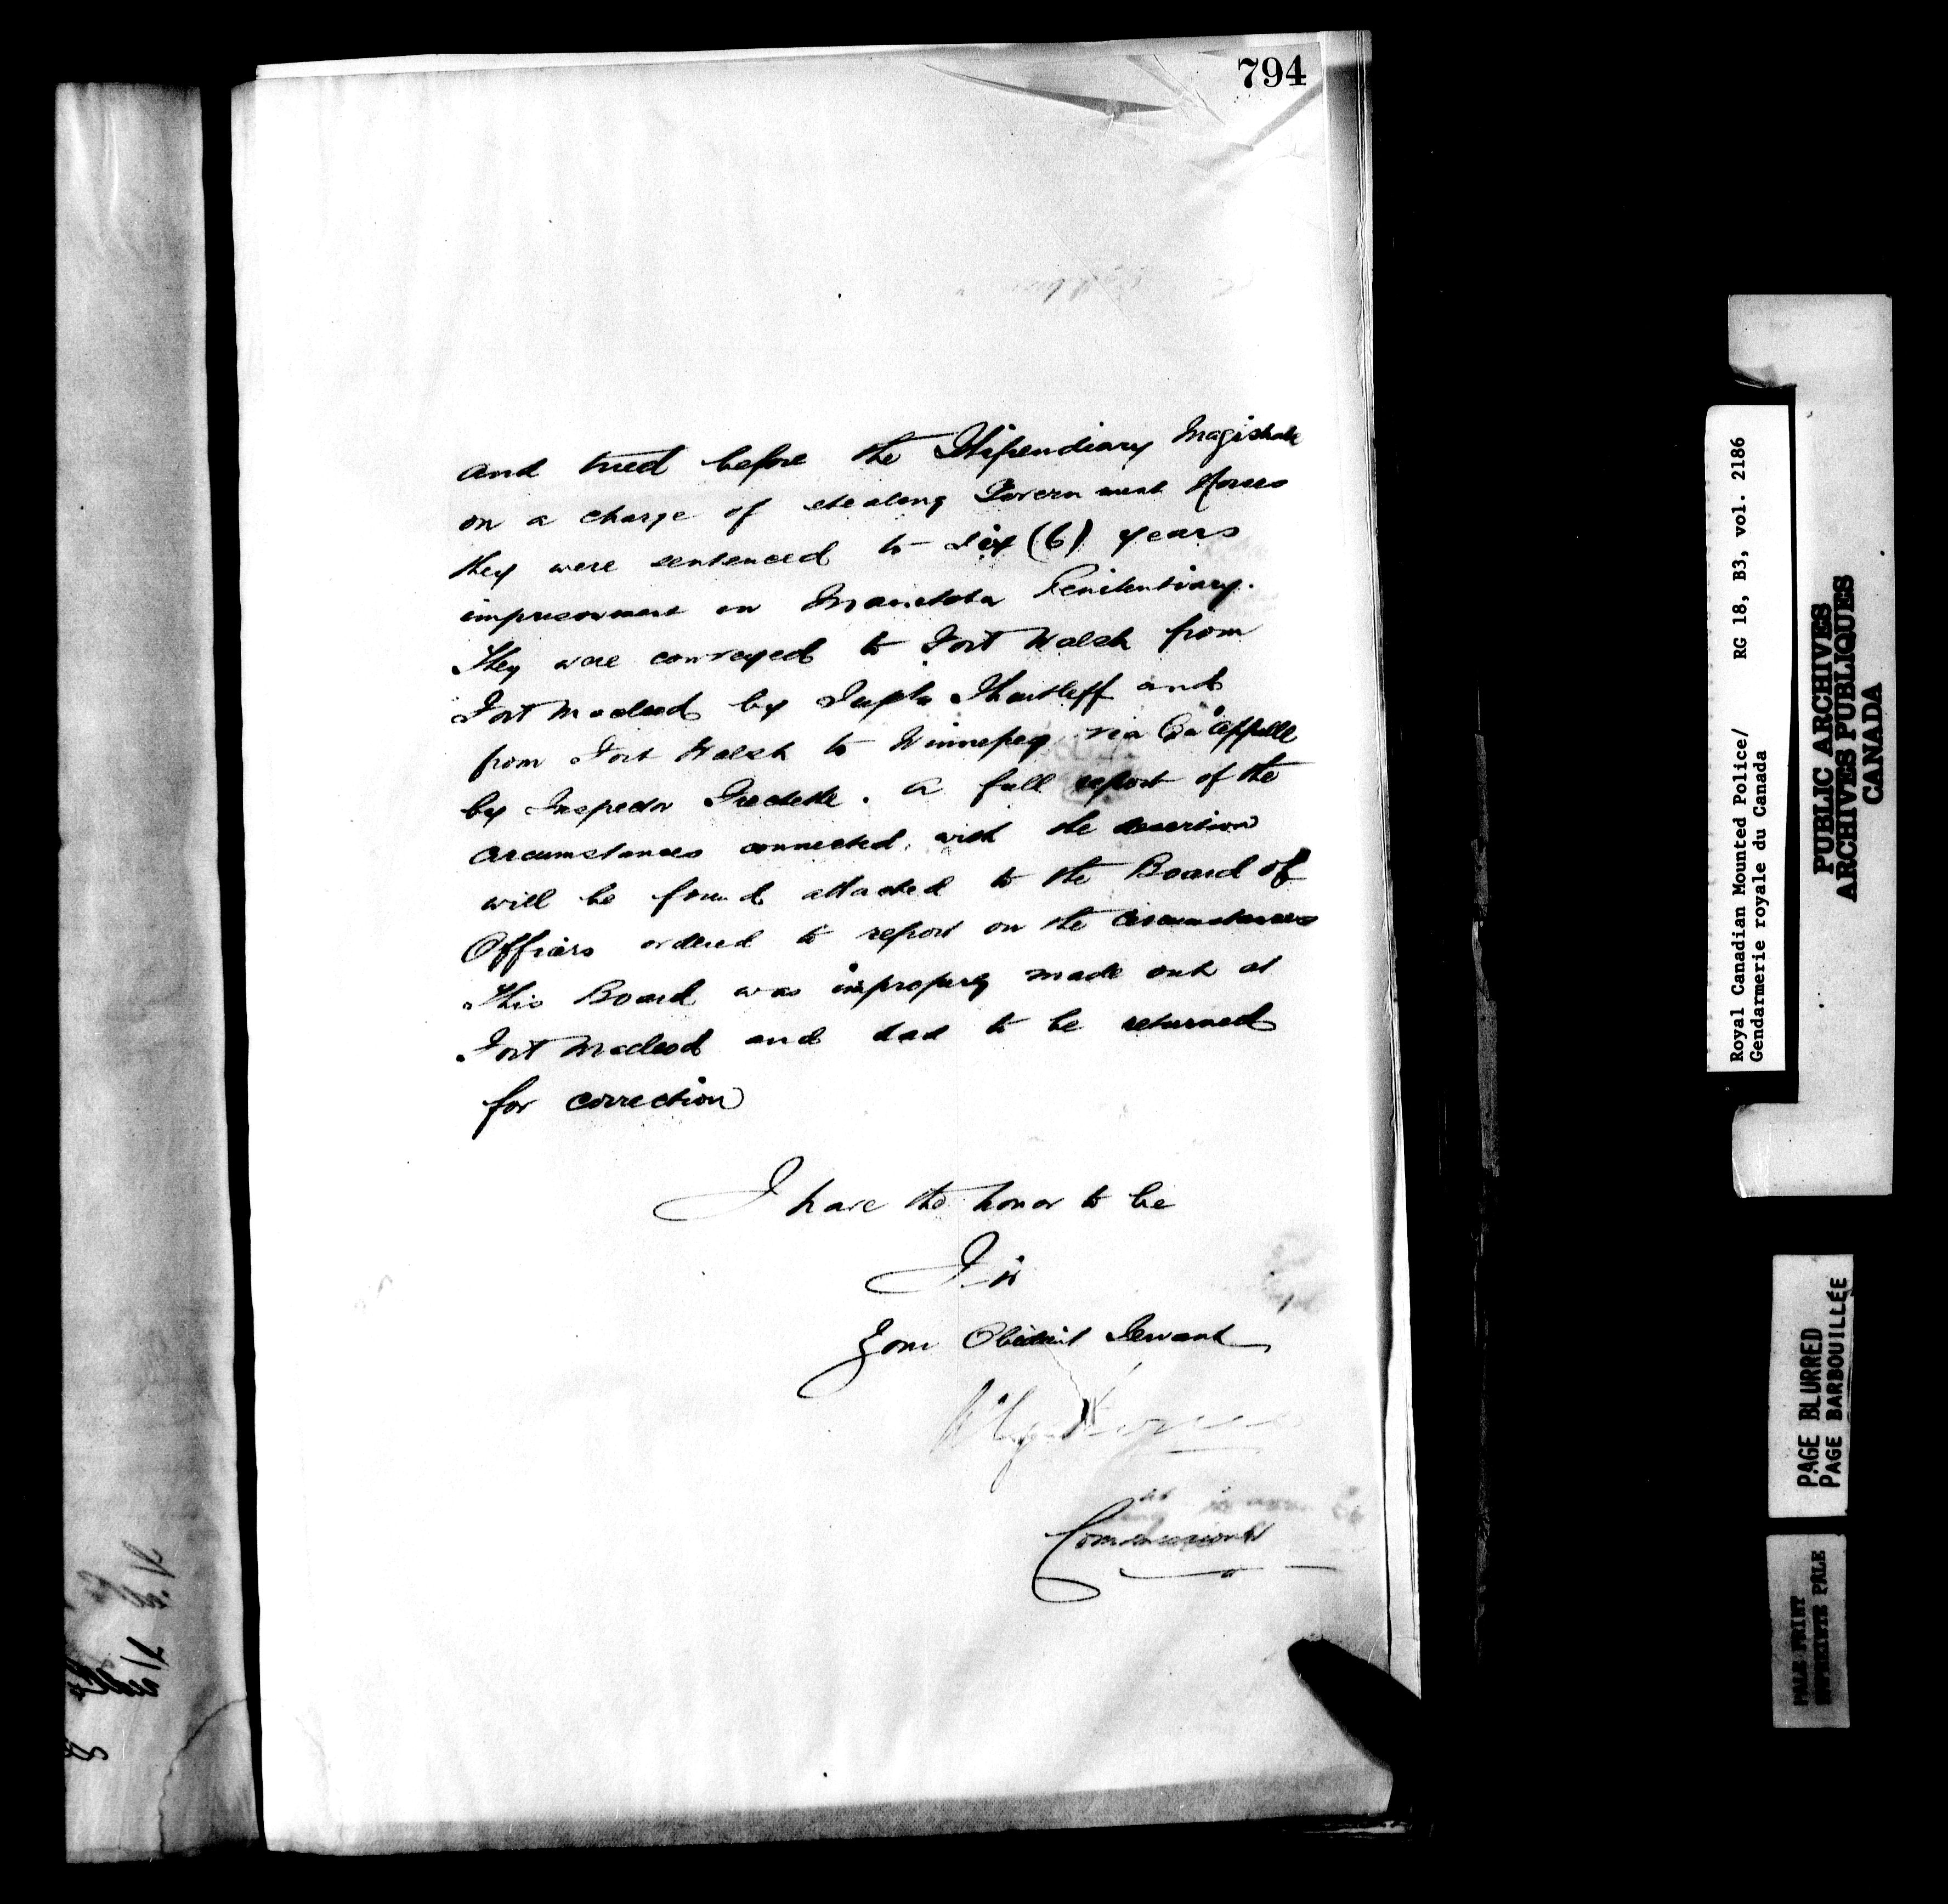 794
and tried before the Stipendiary Magistrate
on a charge of stealing Government Horses
they were sentenced to Six (6) years
imprisonment in Manitoba Penitentiary.
They were conveyed to Fort Walsh from
Fort Macleod by Supt Shurtliff and
from Fort Walsh to Winnipeg via Qu'appelle
by Inspector Frechette. A full report of the
circumstances connected with the desertion
will be found attached to the Board of
Officers ordered to report on the circumstances
This Board was improperly made out at
Fort Macleod and had to be returned
for correction
I have the honor to be
Sir
Your Obedient Servant
Commissioner
Royal Canadian Mounted Police/ RG 18, B3, vol. 2186
Gendarmerie royale du Canada
PUBLIC ARCHIVES
ARCHIVES PUBLIQUES
CANADA
PAGE BLURRED
PAGE BARBOUILLÉE
PALE PRINT
PALE